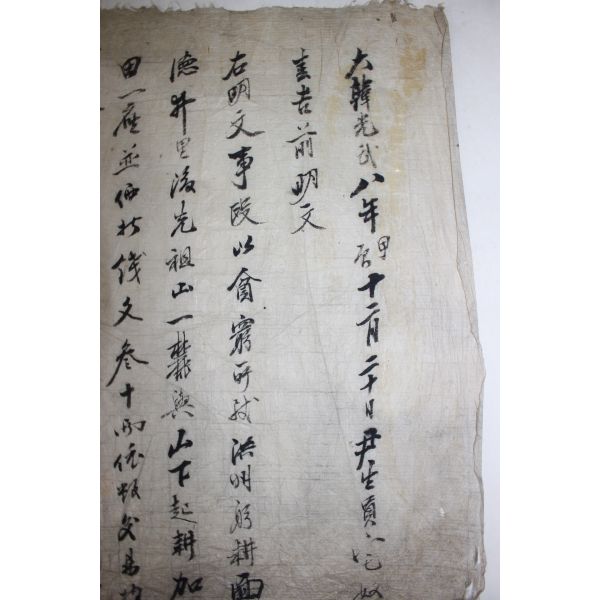 大韓光武八年甲辰十二月二十日尹生員宅奴
吉前明文
右明文事段以貧窮所致洪明躬耕面
德井里後先祖山一麓與山下起耕加
田一座並価折錢文叁十両依數交易